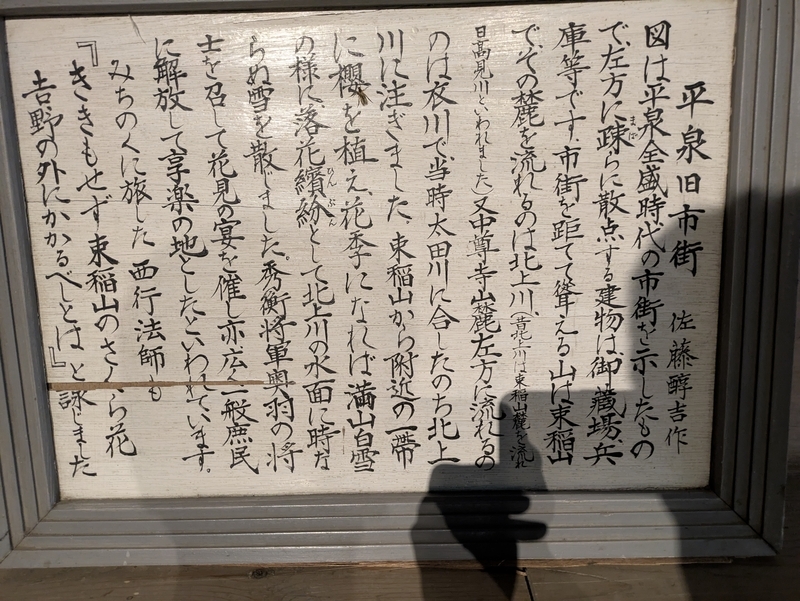 平泉旧市街 佐藤醇吉作
図は平泉全盛時代の市街を示したもの
で、左方に疎らに散点する建物は、御蔵場、兵
まば
庫等です、市街を距てて聳える山は束稲山
で、その麓を流れるのは北上川、(昔北上川は東稲山麓を流れ
日高見川といわれました)又中尊寺山麓左方に流れるの
のは衣川で、当時太田川に合したのち北上
川に注ぎました、東稲山から附近の一帯
に櫻を植え、花季になれば満山白雪
の様に、落花繽紛として北上川の水面に時な
ひんぷん
らぬ雪を散じました。秀衡将軍奥羽の将
士を召して花見の宴を催し亦広く一般庶民
に解放して享楽の地としたといわれています。
みちのくに旅した 西行法師も
『ききもせず 束稲山のさくら花
吉野の外にかかるべしとは』と詠ました